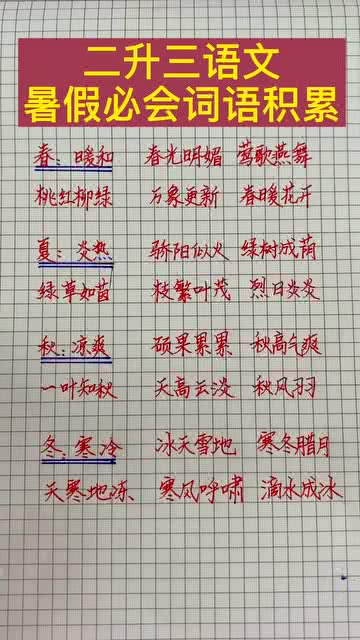 二升三语文
暑假必会词语积累
春：暖和 春光明媚 莺歌燕舞
桃红柳绿 万象更新 春暖花开
夏：炎热 骄阳似火 绿树成荫
绿草如茵 枝繁叶茂 烈日炎炎
秋：凉爽 硕果累累 秋高气爽
一叶知秋 天高云淡 秋风习习
冬：寒冷 冰天雪地 寒冬腊月
天寒地冻 寒风呼啸 滴水成冰